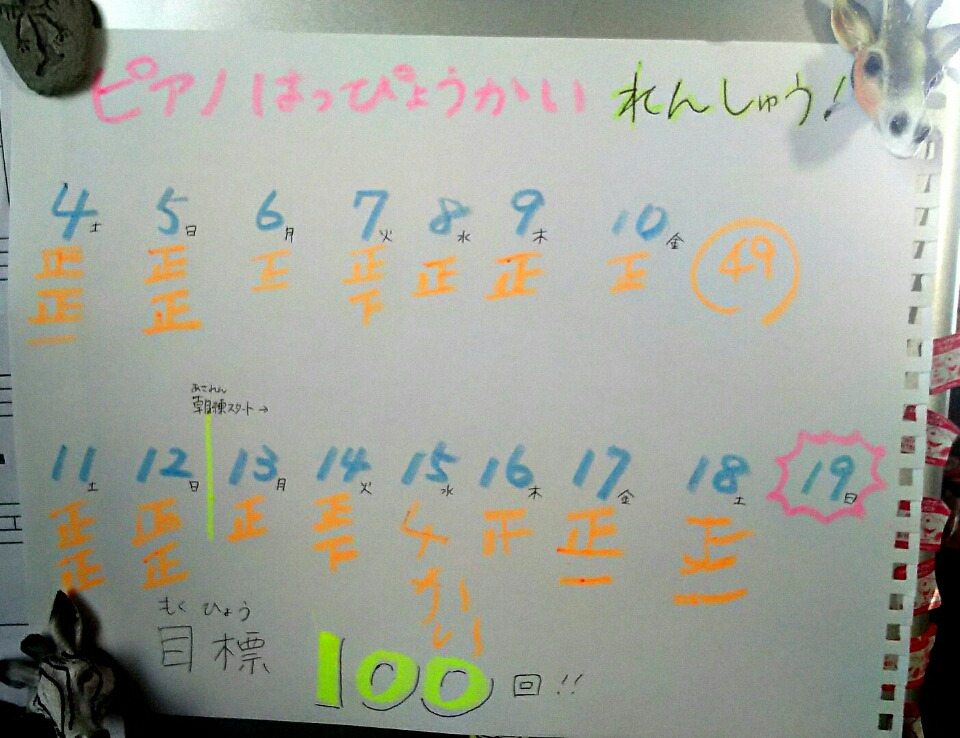 ピアノはっぴょうかい れんしゅう!
4土 5日 6月 7火 8水 9木 10金 49
正 正 正 正 正 正 正
正 正 下
一
あされん
朝練スタート→
11土 12日 13月 14火 15水 16木 17金 18土 19日
正 正 正 正 4 正 正
正 正 下 かい 一 一
もくひょう
目標 100回!!